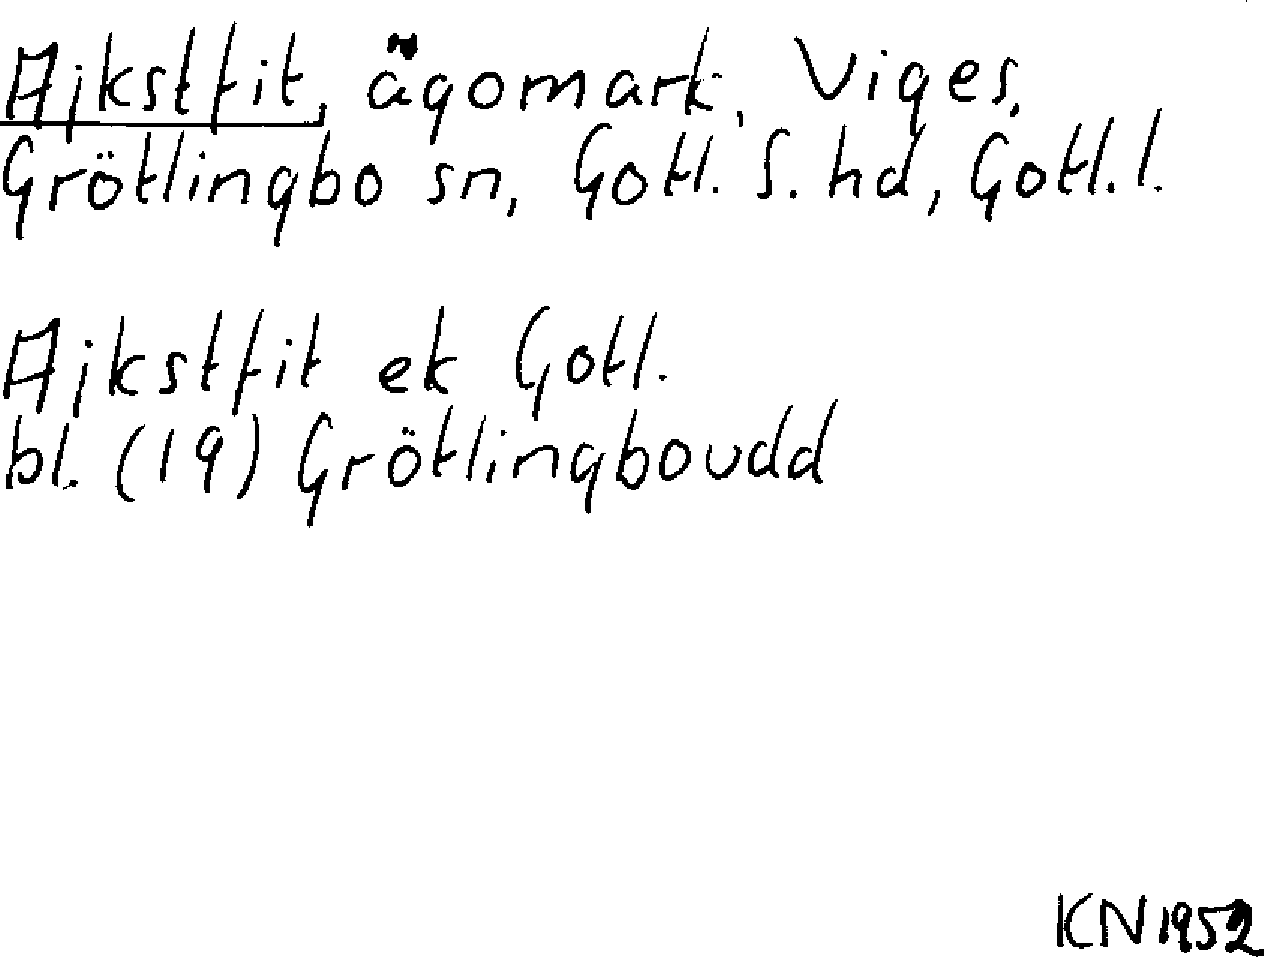 Ajkstfit, ägomark, Viges,
Grötlingbo sn, Gotl. S. hd, Gotl. l.
Ajkstfit ek Gotl.
bl. (19) Grötlingboudd
KN 1952